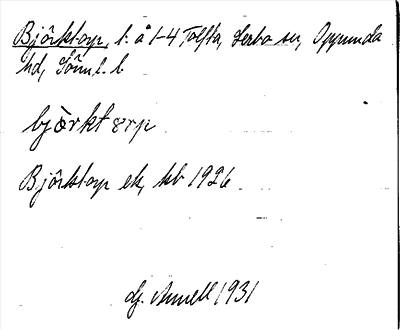 Björktorp, l. å 1-4 Tolfta, Lerbo sn, Oppunda
hd, Söml. l.
björktørp
Björktorp ek, kb 1926
Annell 1931